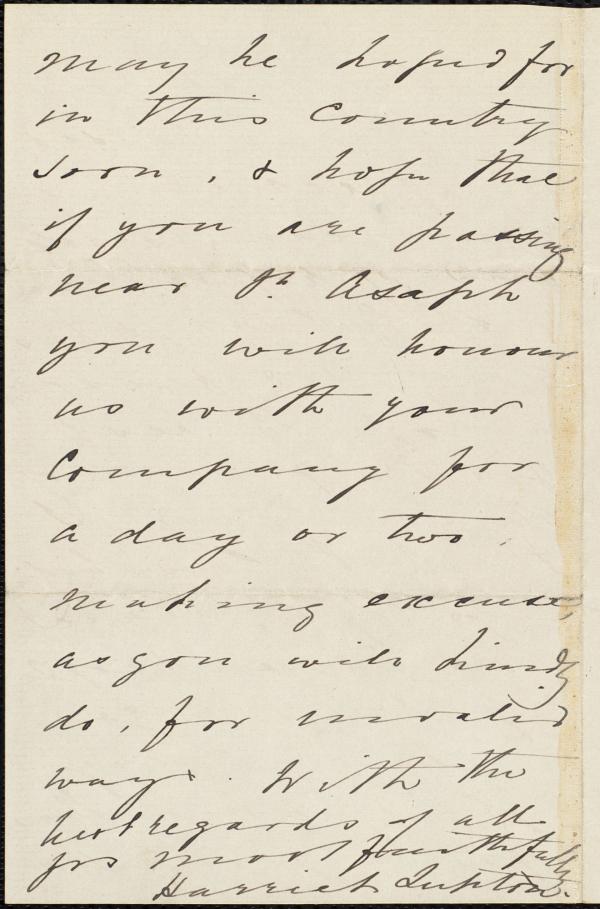 may be hoped for
in this country
soon, & hope that
if you are passing
near St. Asaph
you will honour
us with your
Company for
a day or two,
making excuse,
as you will kindly
do, for invalid
ways. With the
best regards of all
yrs most faithfully
Harriet Lupton.